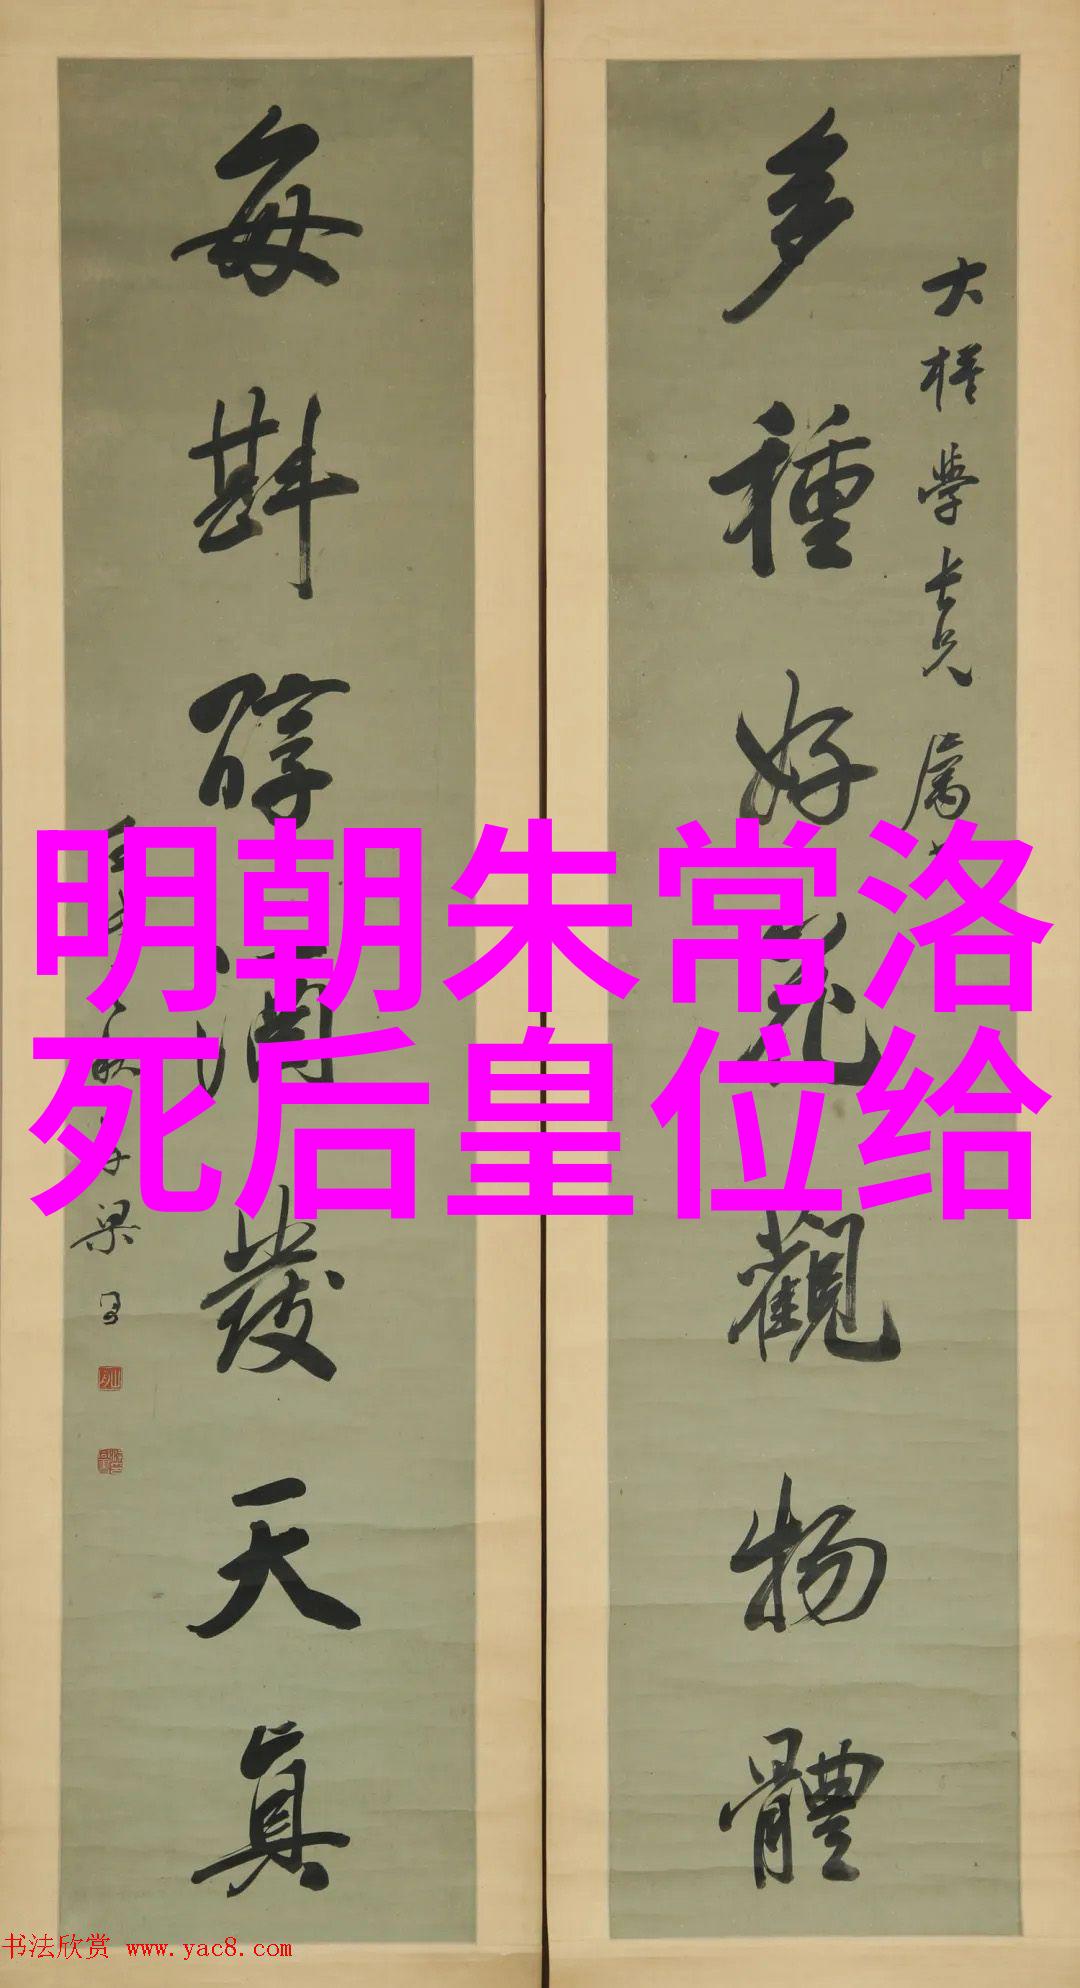 大學長兄屬
多種好花觀物體
每斟醇酒發天真
梁
明朝朱常洛
死后皇位给
书法欣赏 www.yac8.com